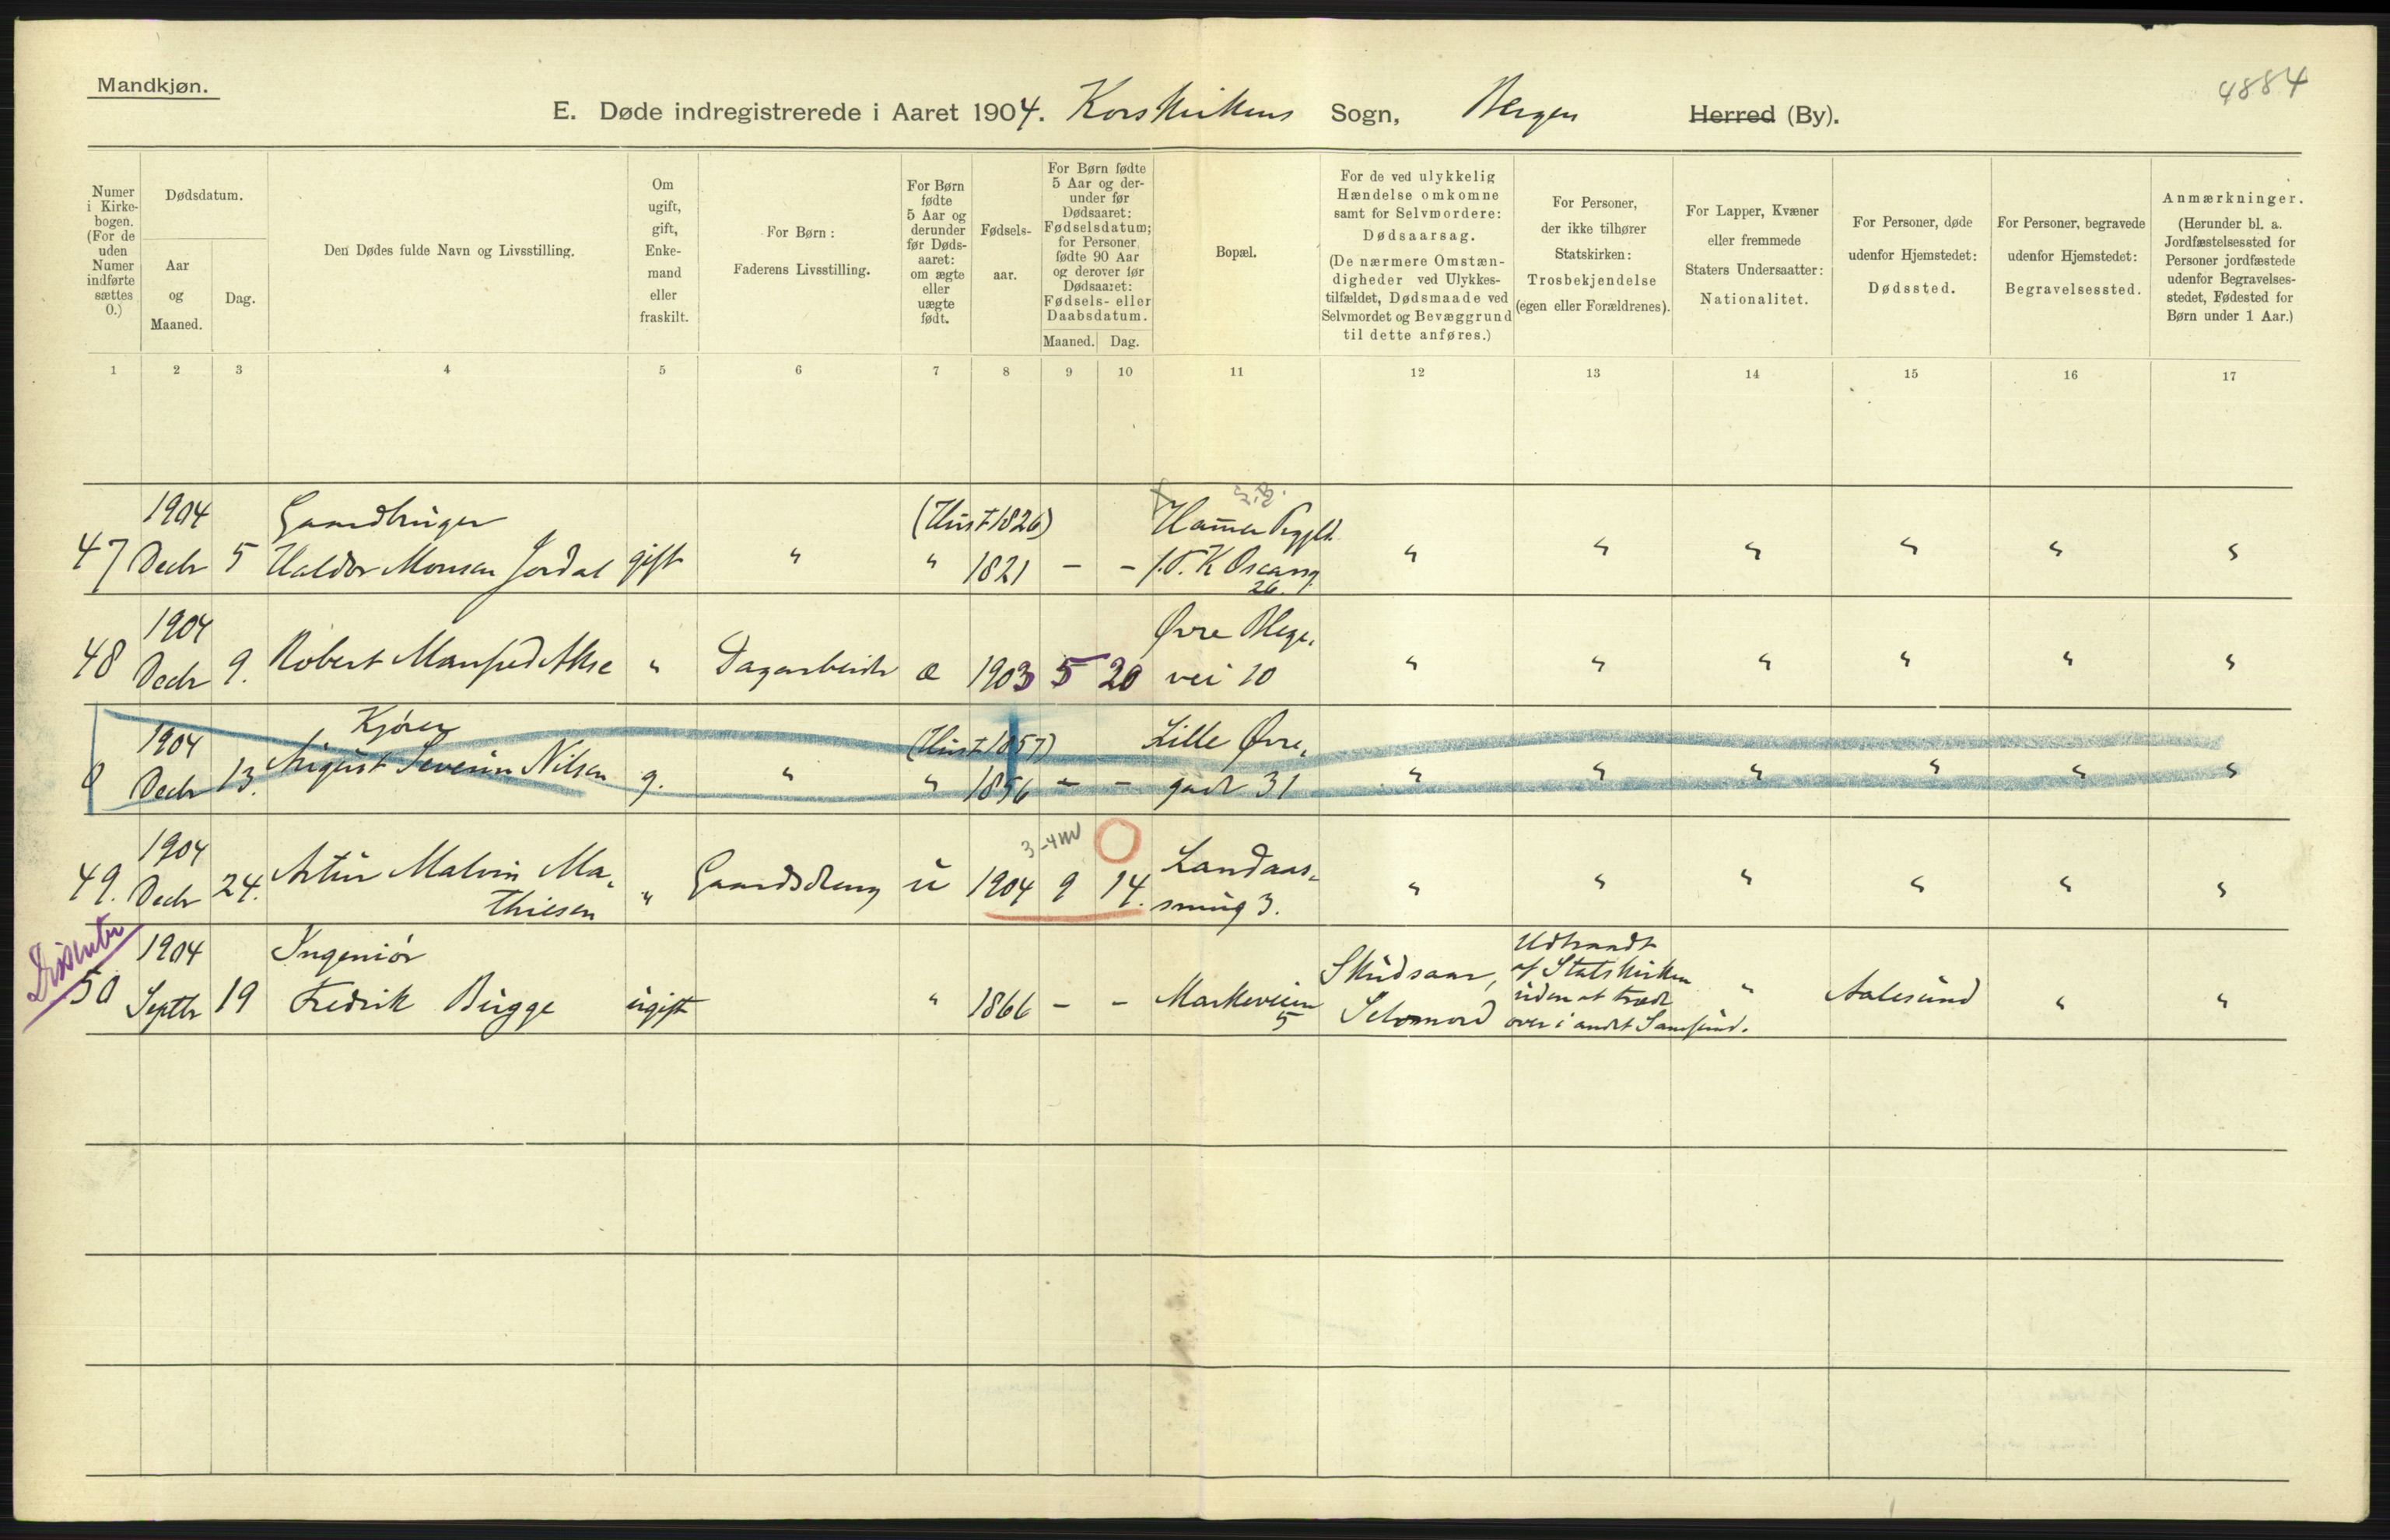 Mandkjøn.
4884
E. Døde indregistrerede i Aaret 1904. Korskirkens Sogn, Bergen Herred (By).
Numer i Kirkebogen. (For de uden Numer indførte sættes 0.)
Dødsdatum.
Aar og Maaned.
Dag.
Den Dødes fulde Navn og Livsstilling.
Om ugift, gift, Enkemand eller fraskilt.
For Børn: Faderens Livsstilling.
For Børn fødte 5 Aar og derunder før Dødsaaret: om ægte eller uægte født.
Fødselsaar.
For Børn fødte 5 Aar og derunder før Dødsaaret: Fødselsdatum; for Personer fødte 90 Aar og derover før Dødsaaret: Fødsels- eller Daabsdatum.
Maaned. Dag.
Bopæl.
For de ved ulykkelig Hændelse omkomne samt for Selvmordere: Dødsaarsag. (De nærmere Omstændigheder ved Ulykkestilfældet, Dødsmaade ved Selvmordet og Bevæggrund til dette anføres.)
For Personer, der ikke tilhører Statskirken: Trosbekjendelse (egen eller Forældrenes).
For Lapper, Kvæner eller fremmede Staters Undersaatter: Nationalitet.
For Personer, døde udenfor Hjemstedet: Dødssted.
For Personer, begravede udenfor Hjemstedet: Begravelsessted.
Anmærkninger. (Herunder bl. a. Jordfæstelsessted for Personer jordfæstede udenfor Begravelsesstedet, Fødested for Børn under 1 Aar.)
1 2 3 4 5 6 7 8 9 10 11 12 13 14 15 16 17
1904 Gaardbruger (Hust 1826) Hamer Prgjld.
47 Decbr 5 Haldor Monsen Jordal gift " " 1821 - - " " " " " "
26.
1904 Øvre Blege-
48 Decbr 9. Robert Manfred " Dagarbeider æ 1903 5 20 vei 10 " " " " " "
1904 Kjører (Hust 1857) Lille Øvre-
0 Decbr 13. August Severin Nilsen g. " " 1856 - - gade 31 " " " " " "
1904 3-4 m
49. Decbr 24. Artur Malvin Ma- " Gaardsdreng u 1904 9 14. Landaas- " " " " " "
thiesen sming 3.
Dissenter
1904 Ingeniør Skudsaar, Udtraadt af Statskirken
50 Septbr 19 Fredrik Bugge ugift " 1866 - - Markeveien 5 Selvmord uden at træde over i andet Samfund. " Aalesund " "